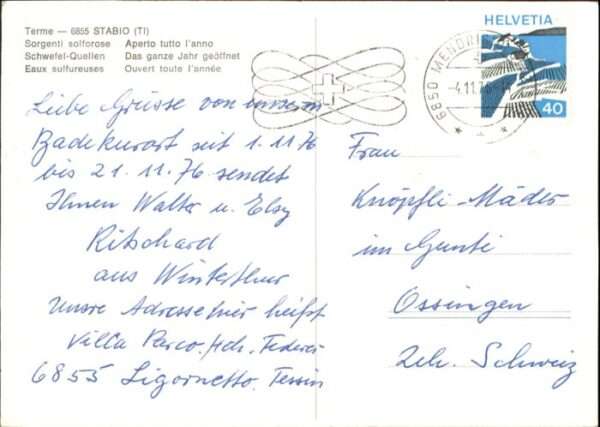 Terme — 6855 STABIO (TI)
Sorgenti solforose Aperto tutto l'anno
Schwefel-Quellen Das ganze Jahr geöffnet
Eaux sulfureuses Ouvert toute l'année
HELVETIA
40
6850 MENDRIS
-4.11.76
Liebe Grüsse von unserm
Badekurort seit 1.11.76
bis 21.11.76 sendet
Ihnen Walter u. Elsy
Ritschard
aus Winterthur
Unsre Adresse hier heisst
Villa Parco. Hch. Federer
6855 Ligornetto. Tessin
Frau
Knöpfli-Mäder
im Gunti
Ossingen
Zch. Schweiz